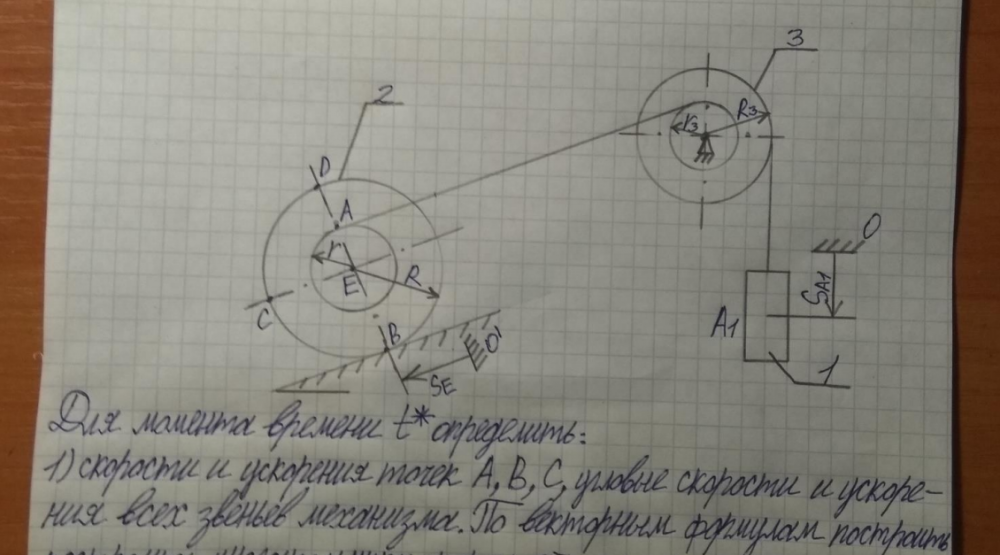 2
3
D
A
r
E
R
C
B
SE
O'
r3
R3
O
SA1
A1
1
Для момента времени t* определить:
1) скорости и ускорения точек А, В, С, угловые скорости и ускоре-
ния всех звеньев механизма. По векторным формулам построить